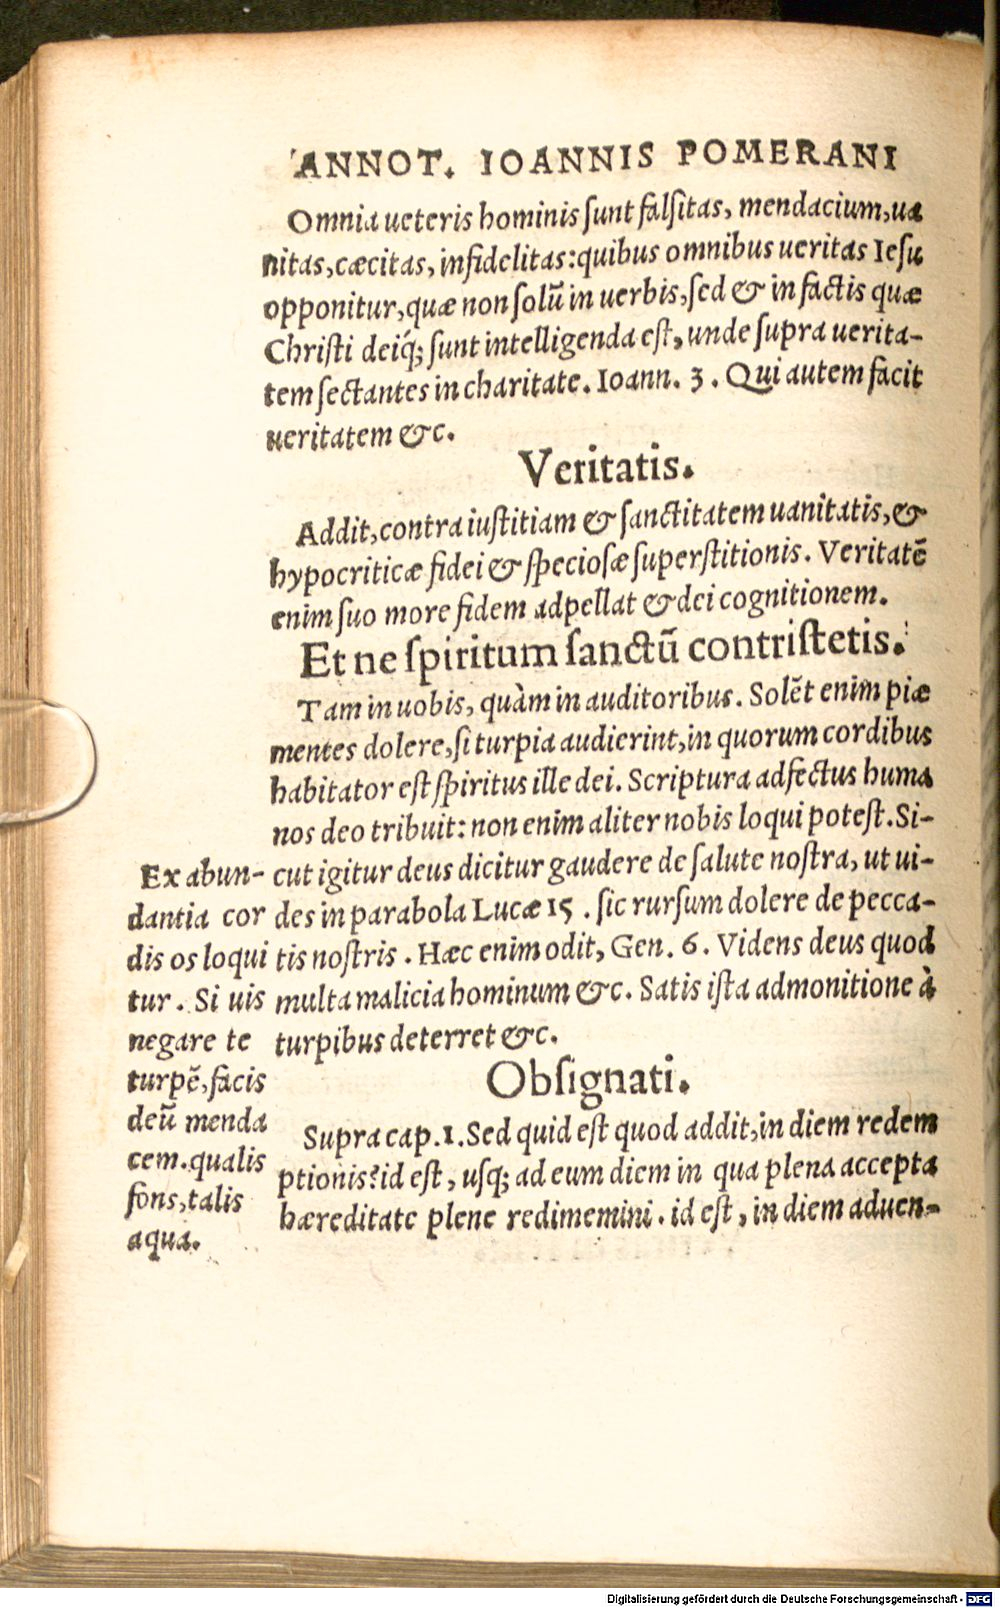 ANNOT. IOANNIS POMERANI
Omnia ueteris hominis sunt falsitas, mendacium, ua
nitas, cæcitas, infidelitas: quibus omnibus ueritas Iesu
opponitur, quæ non solū in uerbis, sed & in factis quæ
Christi deiq́; sunt intelligenda est, unde supra uerita-
tem sectantes in charitate. Ioann. 3. Qui autem facit
ueritatem &c.
Veritatis.
Addit, contra iustitiam & sanctitatem uanitatis, &
hypocriticæ fidei & speciosæ superstitionis. Veritatē
enim suo more fidem adpellat & dei cognitionem.
Et ne spiritum sanctū contristetis.
Tam in uobis, quàm in auditoribus. Solēt enim piæ
mentes dolere, si turpia audierint, in quorum cordibus
habitator est spiritus ille dei. Scriptura adfectus huma
nos deo tribuit: non enim aliter nobis loqui potest. Si-
cut igitur deus dicitur gaudere de salute nostra, ut ui-
des in parabola Lucæ 15. sic rursum dolere de pecca-
tis nostris. Hæc enim odit, Gen. 6. Videns deus quod
multa malicia hominum &c. Satis ista admonitione à
turpibus deterret &c.
Ex abun-
dantia cor
dis os loqui
tur. Si uis
negare te
turpē, facis
deū menda
cem. qualis
fons, talis
aqua.
Obsignati.
Supra cap. 1. Sed quid est quod addit, in diem redem
ptionis? id est, usq; ad eum diem in qua plena accepta
hæreditate plene redimemini. id est, in diem aduen-
Digitalisierung gefördert durch die Deutsche Forschungsgemeinschaft - DFG